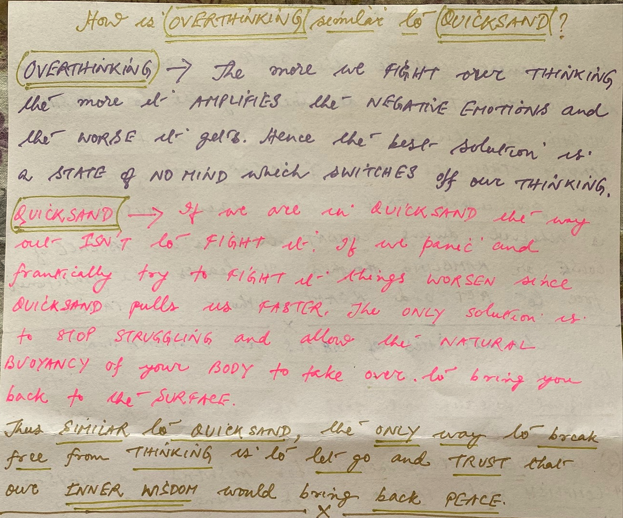 How is OVERTHINKING similar to QUICKSAND?
OVERTHINKING → The more we FIGHT our THINKING
the more it AMPLIFIES the NEGATIVE EMOTIONS and
the WORSE it gets. Hence the best solution is
a STATE of NO MIND which SWITCHES off our THINKING.
QUICKSAND → If we are in QUICKSAND the way
out ISN'T to FIGHT it. If we panic and
frantically try to FIGHT it things WORSEN since
QUICKSAND pulls us FASTER. The ONLY solution is
to STOP STRUGGLING and allow the NATURAL
BUOYANCY of your BODY to take over to bring you
back to the SURFACE.
Thus SIMILAR to QUICKSAND, the ONLY way to break
free from THINKING is to let go and TRUST that
our INNER WISDOM would bring back PEACE.
X